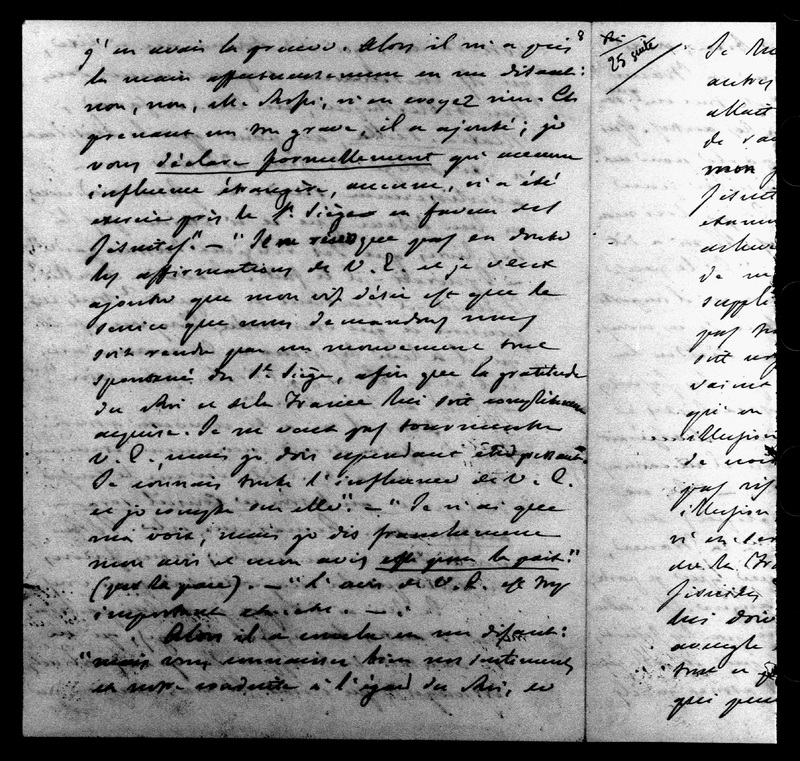 j'en avais la preuve. Alors il m'a pris
la main affectueusement en me disant:
non, non, M. Rossi, n'en croyez rien. Et
prenant un ton grave, il a ajouté; je
vous déclare formellement qu'aucune
influence étrangère, aucune, n'a été
exercée près le St. Siège en faveur des
Jésuites". — "Je ne révoque pas en doute
les affirmations de V. E. et je veux
ajouter que mon vif désir est que le
service que nous demandons nous
soit rendu par un mouvement tout
spontané du St. Siège, afin que la gratitude
du Roi et de la France lui soit complètement
acquise. Je ne veux pas tourmenter
V. E. mais je dois cependant être pressant.
Je connais toute l'influence de V. E.
et je compte sur elle". — "Je n'ai que
ma voix, mais je dis franchement
mon avis et mon avis est pour la paix."
(par la pace). — "L'avis de V. E. est très
important etc. etc. —
Alors il a conclu en me disant:
"mais vous connaissez bien nos sentiments
et notre conduite à l'égard du Roi, et
8
25 suite
Je
autres
allait
de
mon
Jésuit
de
suppli
pas
soit
vainc
qui
illusion
de
pas
illusion
de la Fra
Jésuites
lui doi
aveugle
tout
qui peu